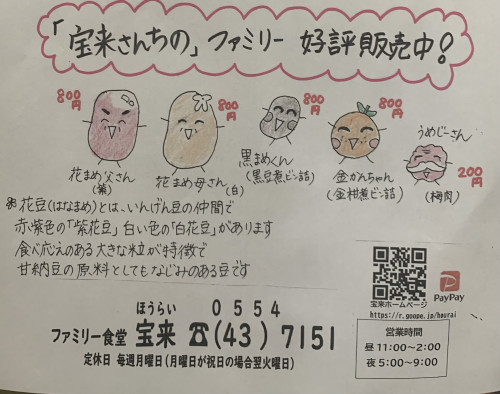 「宝来さんちの」ファミリー 好評販売中!
800円
800円
800円
800円
うめじーさん
200円
花まめ父さん
(紫)
花まめ母さん
(白)
黒まめくん
(黒豆煮ビン詰)
金かんちゃん
(金柑煮ビン詰)
(梅肉)
※花豆(はなまめ)とは、いんげん豆の仲間で
赤紫色の「紫花豆」白い色の「白花豆」があります
食べ応えのある大きな粒が特徴で
甘納豆の原料としてもなじみのある豆です
PayPay
宝来ホームページ
https://r.goope.jp/hourai
ほうらい 0554
ファミリー食堂 宝来 ☎(43)7151
定休日 毎週月曜日(月曜日が祝日の場合翌火曜日)
営業時間
昼 11:00~2:00
夜 5:00~9:00